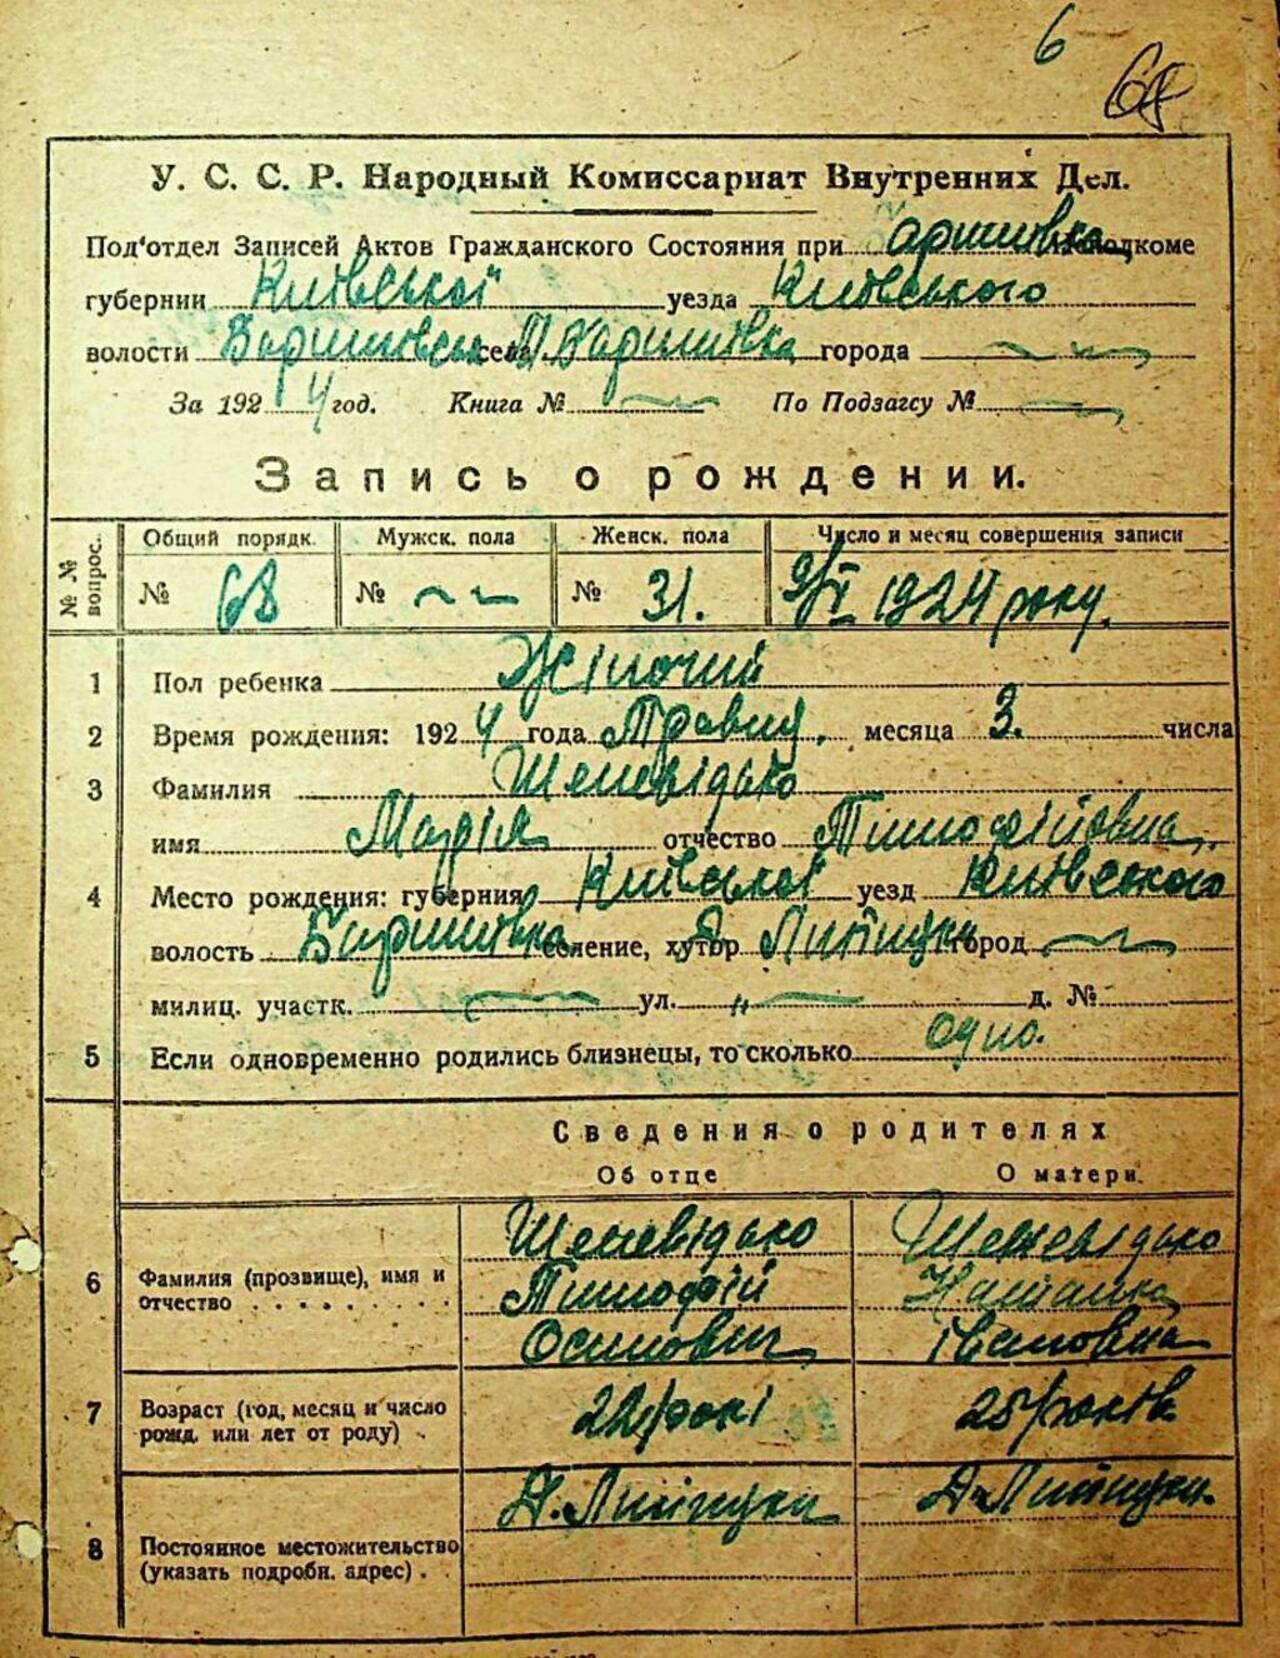 6
68
У. С. С. Р. Народный Комиссариат Внутренних Дел.
Под'отдел Записей Актов Гражданского Состояния при Баришівка
губернии Київської уезда Київського
волости Баришівськ села М. Баришівка города
За 1924 год. Книга № По Подзагсу №
Запись о рождении.
№ № вопрос. Общий порядк. Мужск. пола Женск. пола Число и месяц совершения записи
№ 68 № № 31. 9/V 1924 року.
1 Пол ребенка Жіночий
2 Время рождения: 1924 года Травня. месяца 3. числа
3 Фамилия Шеневідько
имя Марія отчество Тимофіївна
4 Место рождения: губерния Київської уезд Київського
волость Баришівка селение, хутор город
милиц. участк. ул. „ д. №
5 Если одновременно родились близнецы, то сколько одно.
Сведения о родителях
Об отце О матери.
Шеневідько Шеневідько
6 Фамилия (прозвище), имя и отчество . . . . . . . . . Тимофій Наталка
Осипович Івановна
7 Возраст (год, месяц и число рожд. или лет от роду) . 22/рокі 25/років
8 Постоянное местожительство (указать подробн. адрес) .